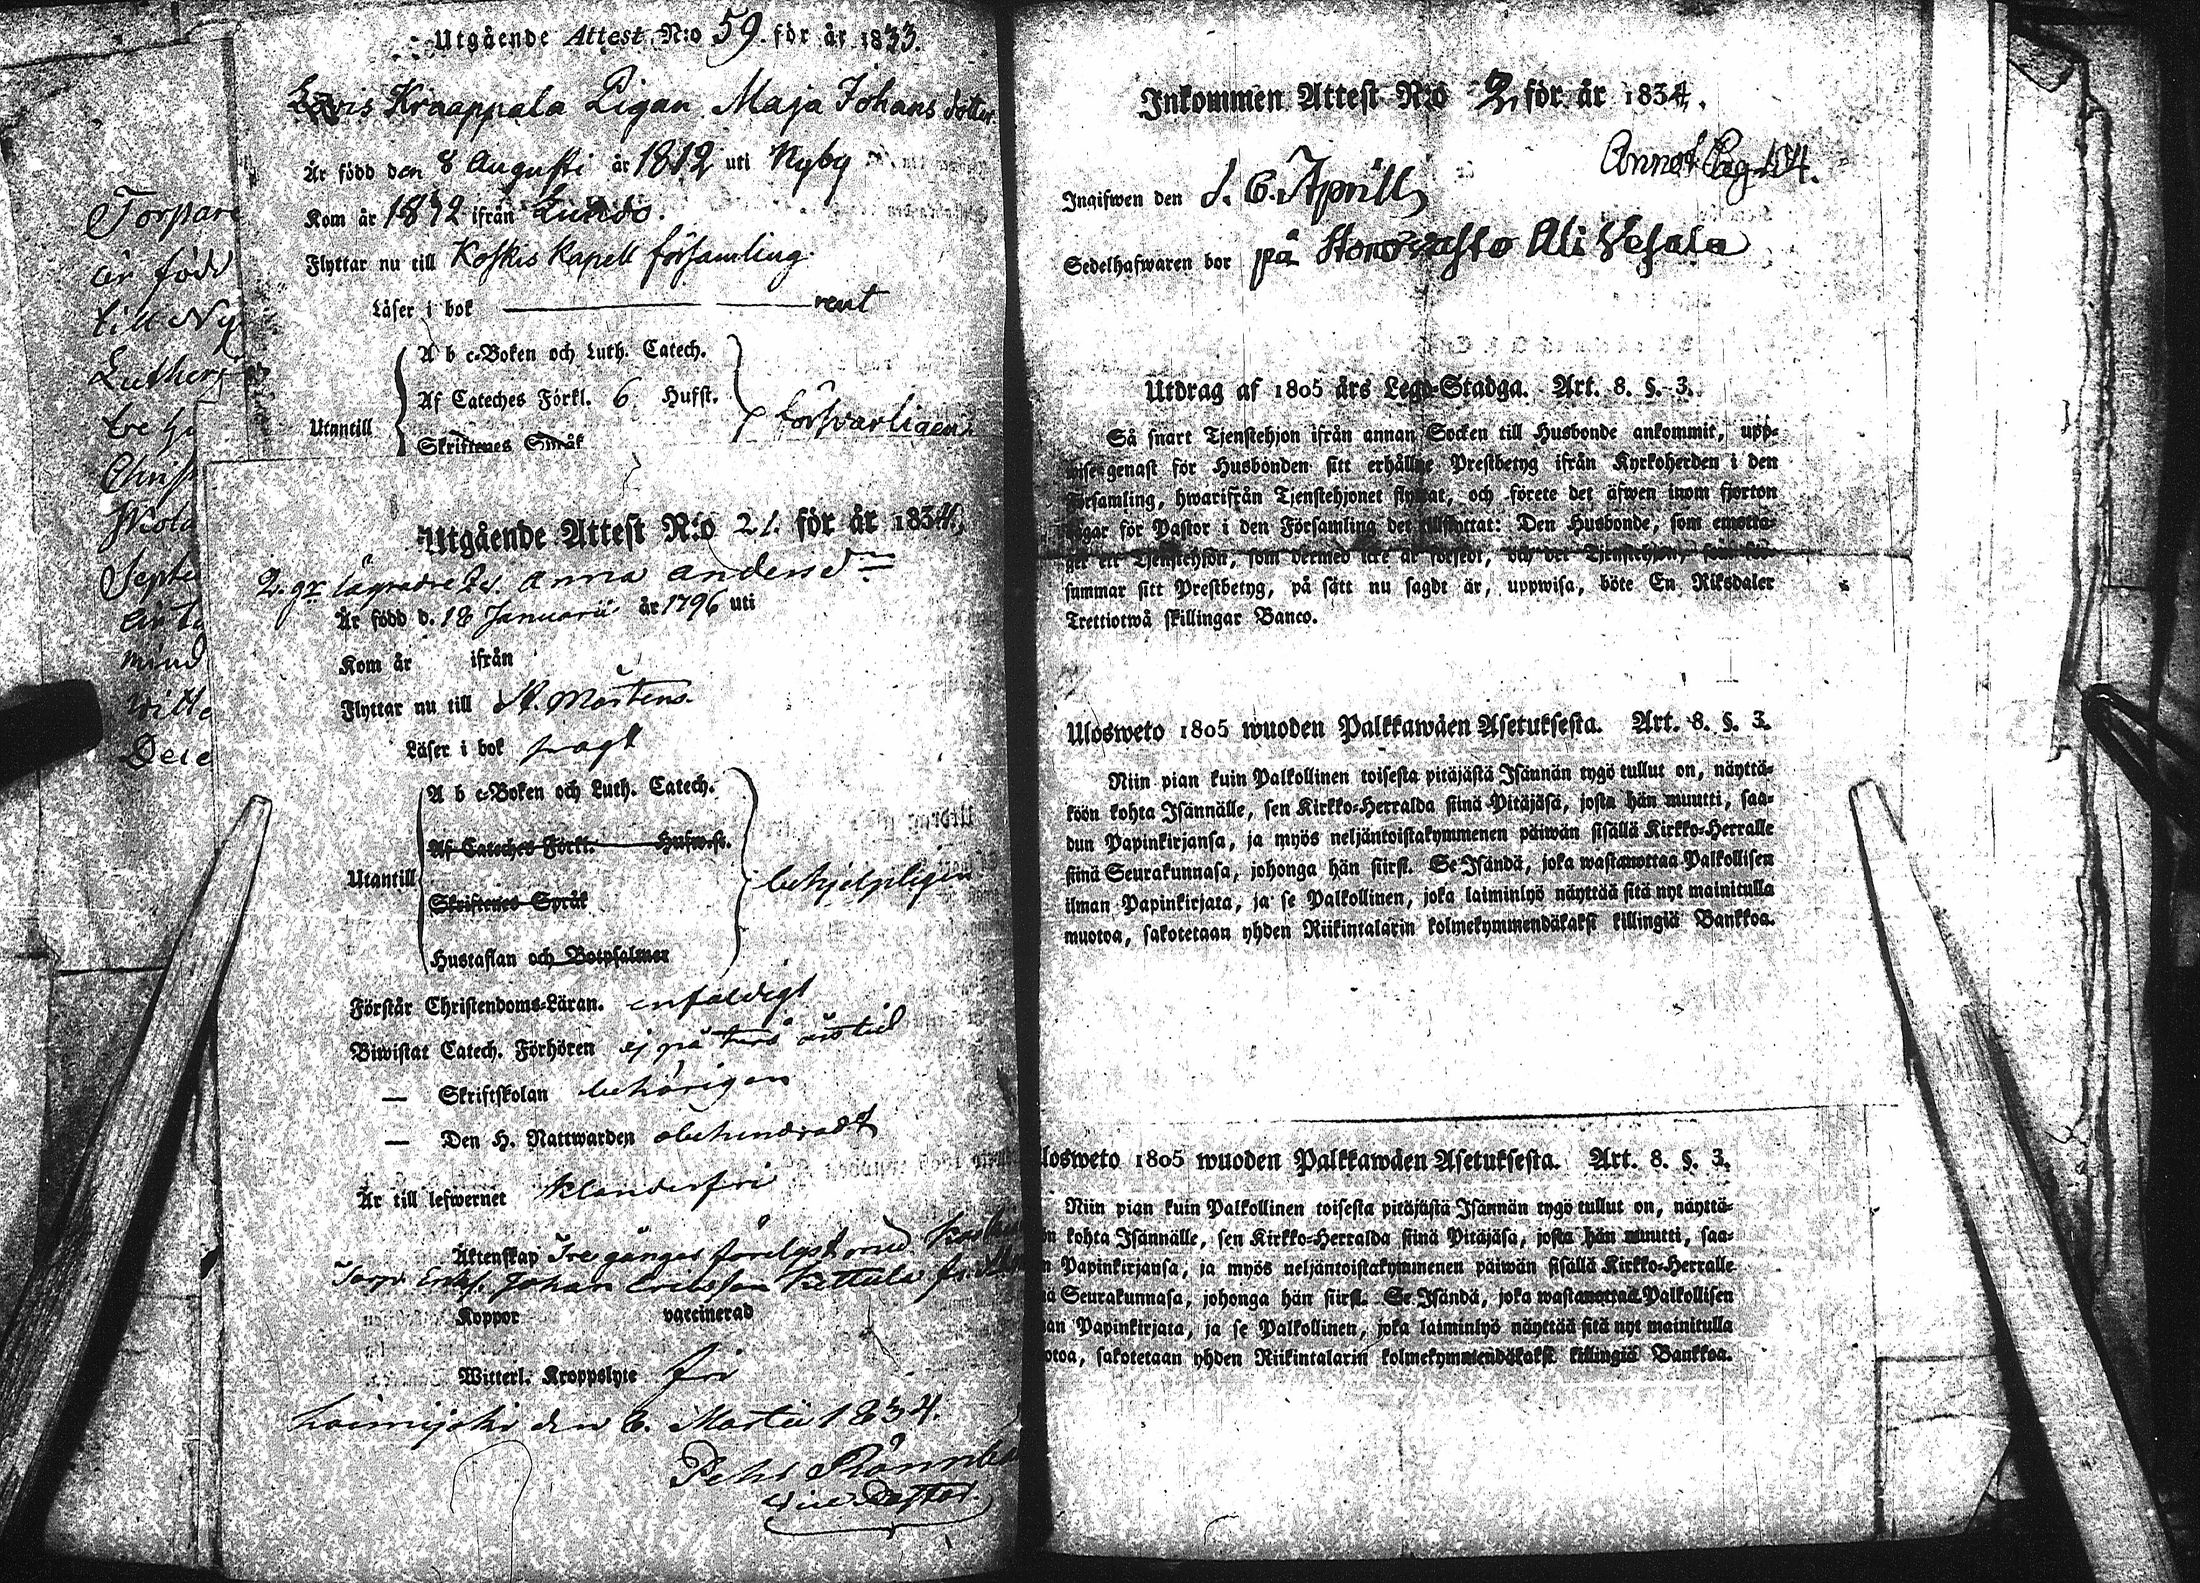 Utgående Attest N:o 59. för år 1833.
Krnappala Pigan Maja Johans dotter
Är född den 8 Augusti år 1812 uti Nyby
Kom år 1812 ifrån
Flyttar nu till Koskis Kapell församling.
Läser i bok rent
A b c-Boken och Luth. Catech.
Af Cateches Förkl. 6 Hufst.
Utantill försvarligen
Skriftenes Språk
Torpare
är född
till Ny
Luther
tre
Christ
Septe
mind
witte
Utgående Attest N:o 21. för år 1834,
Anna Andersdr
Är född d. 18 Januarii år 1796 uti
Kom år ifrån
Flyttar nu till St. Mårtens.
Läser i bok svagt
A b c-Boken och Luth. Catech.
Af Cateches Förkl. Hufw.st.
Utantill behjelpligen
Skriftenes Språk
Hustaflan och Botpsalmer
Förstår Christendoms-Läran. enfaldigt
Biwistat Catech. Förhören ej på års tid
— Skriftskolan behörigen
— Den H. Nattwarden obehindradt
Är till lefwernet klanderfri
Äktenskap Tre gånger förelyst med
Johan Ericsson Kettula
Koppor vaccinerad
Witterl. Kroppslyte fri
Loimijoki den 6. Martii 1834.
Pehr
vice Pastor.
Inkommen Attest N:o 2, för år 1834.
Ingifwen den d. 6. Aprill
Sedelhafwaren bor på Ali Vesala
Utdrag af 1805 års Lego-Stadga. Art. 8. §. 3.
Så snart Tjenstehjon ifrån annan Socken till Husbonde ankommit, upp-
wise genast för Husbonden sitt erhållne Prestbetyg ifrån Kyrkoherden i den
Församling, hwarifrån Tjenstehjonet flyttat, och förete det äfwen inom fjorton
dagar för Pastor i den Församling det tillflyttat: Den Husbonde, som emotta-
ger ett Tjenstehjon, som dermed icke är försedt, och det Tjenstehjon, som för-
summar sitt Prestbetyg, på sätt nu sagdt är, uppwisa, böte En Riksdaler
Trettiotwå skillingar Banco.
Ulosweto 1805 wuoden Palkkawäen Asetuksesta. Art. 8. §. 3.
Niin pian kuin Palkollinen toisesta pitäjästä Isännän tygö tullut on, näyttä-
köön kohta Isännälle, sen Kirkko-Herralda siinä Pitäjäsä, josta hän muutti, saa-
dun Papinkirjansa, ja myös neljäntoistakymmenen päiwän sisällä Kirkko-Herralle
siinä Seurakunnasa, johonga hän siirsi. Se Isändä, joka wastanottaa Palkollisen
ilman Papinkirjata, ja se Palkollinen, joka laiminlyö näyttää sitä nyt mainitulla
muotoa, sakotetaan yhden Riikintalarin kolmekymmendäkaksi killingiä Bankkoa.
losweto 1805 wuoden Palkkawäen Asetuksesta. Art. 8. §. 3.
Niin pian kuin Palkollinen toisesta pitäjästä Isännän tygö tullut on, näyttä-
n kohta Isännälle, sen Kirkko-Herralda siinä Pitäjäsä, josta hän muutti, saa-
n Papinkirjansa, ja myös neljäntoistakymmenen päiwän sisällä Kirkko-Herralle
ä Seurakunnasa, johonga hän siirsi. Se Isändä, joka wastanottaa Palkollisen
an Papinkirjata, ja se Palkollinen, joka laiminlyö näyttää sitä nyt mainitulla
otoa, sakotetaan yhden Riikintalarin kolmekymmendäkaksi killingiä Bankkoa.